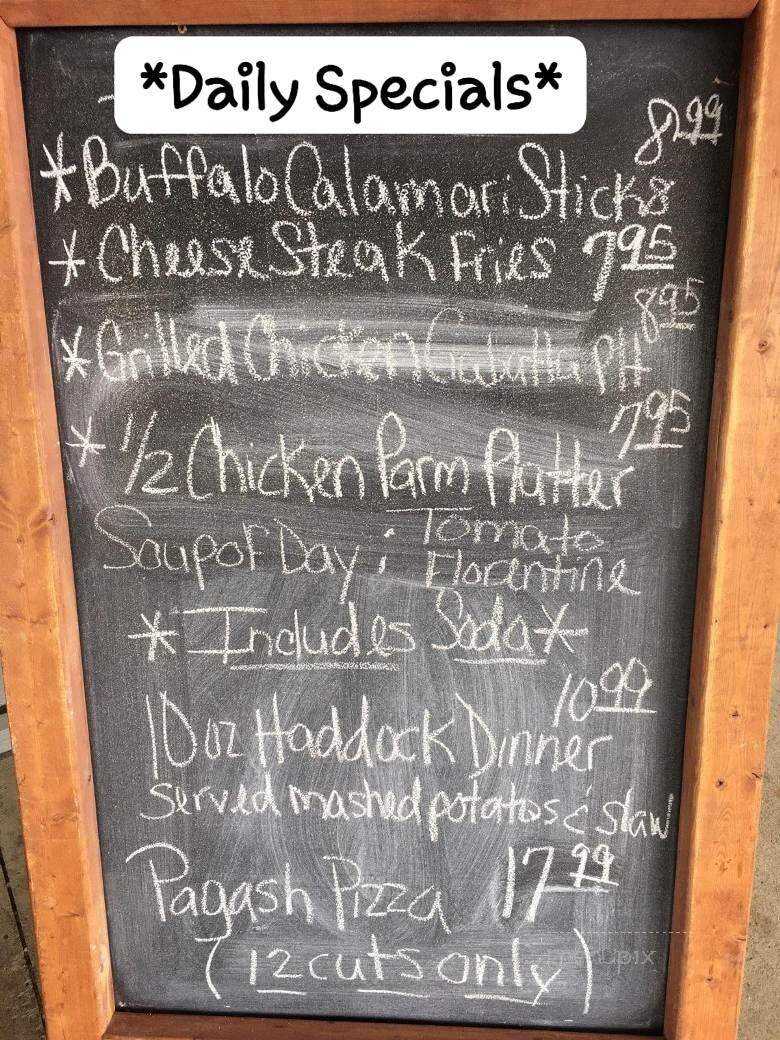 *Daily Specials*
8.99
*Buffalo Calamari Sticks
*Cheese Steak Fries 7.95
8.95
*Grilled Chicken PH
7.95
*1/2 Chicken Parm Platter
Soup of Day: Tomato
Florentine
*Includes Soda*
10.99
10oz Haddock Dinner
served mashed potatos & slaw
Pagash Pizza 17.99
(12 cuts only)
menupix